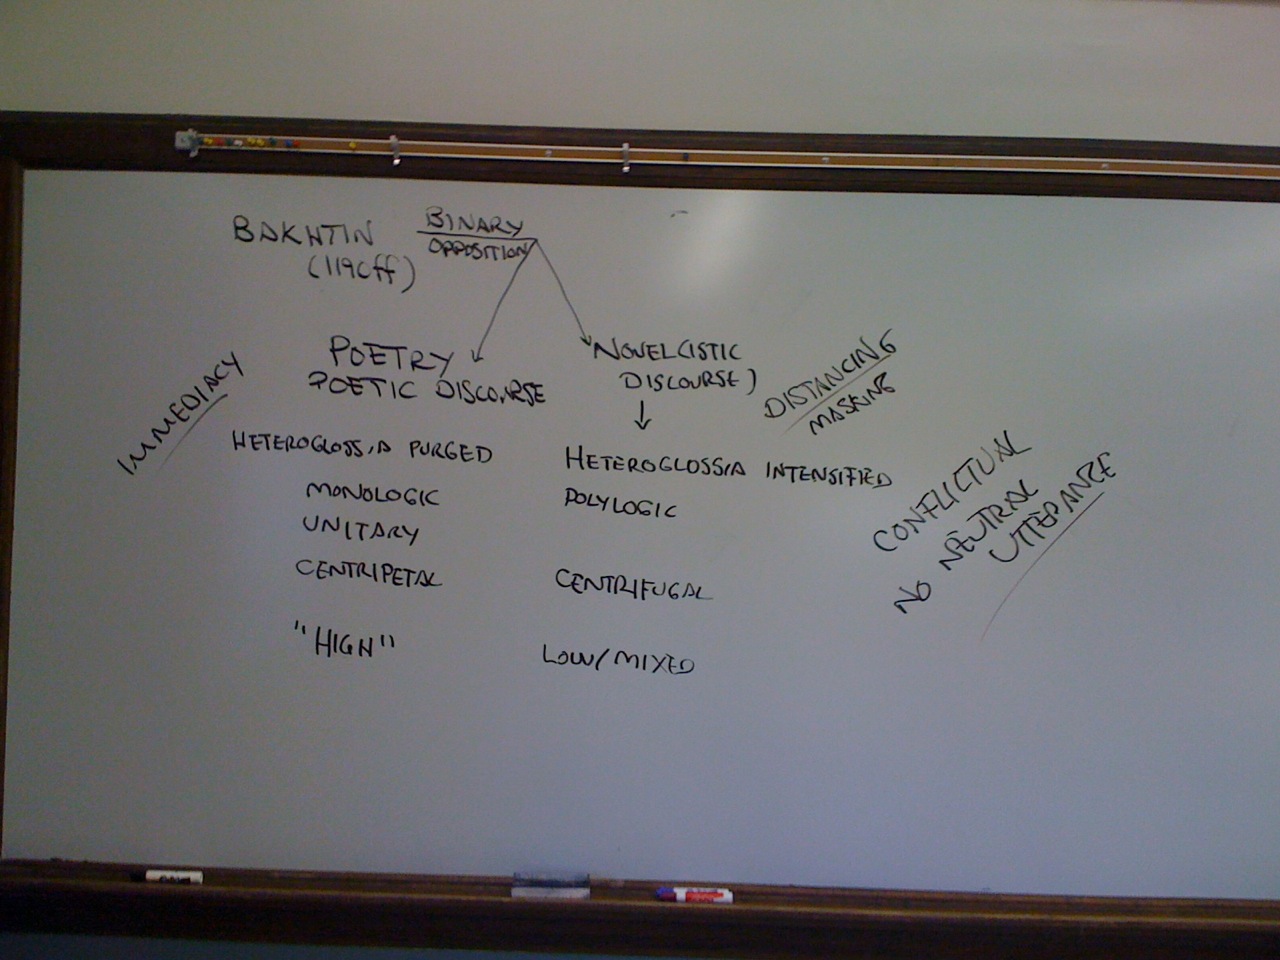 BAKHTIN
(1190ff)
BINARY
OPPOSITION
IMMEDIACY
POETRY
POETIC DISCOURSE
HETEROGLOSSIA PURGED
MONOLOGIC
UNITARY
CENTRIPETAL
"HIGH"
NOVEL(ISTIC
DISCOURSE)
HETEROGLOSSIA INTENSIFIED
POLYLOGIC
CENTRIFUGAL
LOW/MIXED
DISTANCING
MASKING
CONFLICTUAL
NO NEUTRAL
UTTERANCE